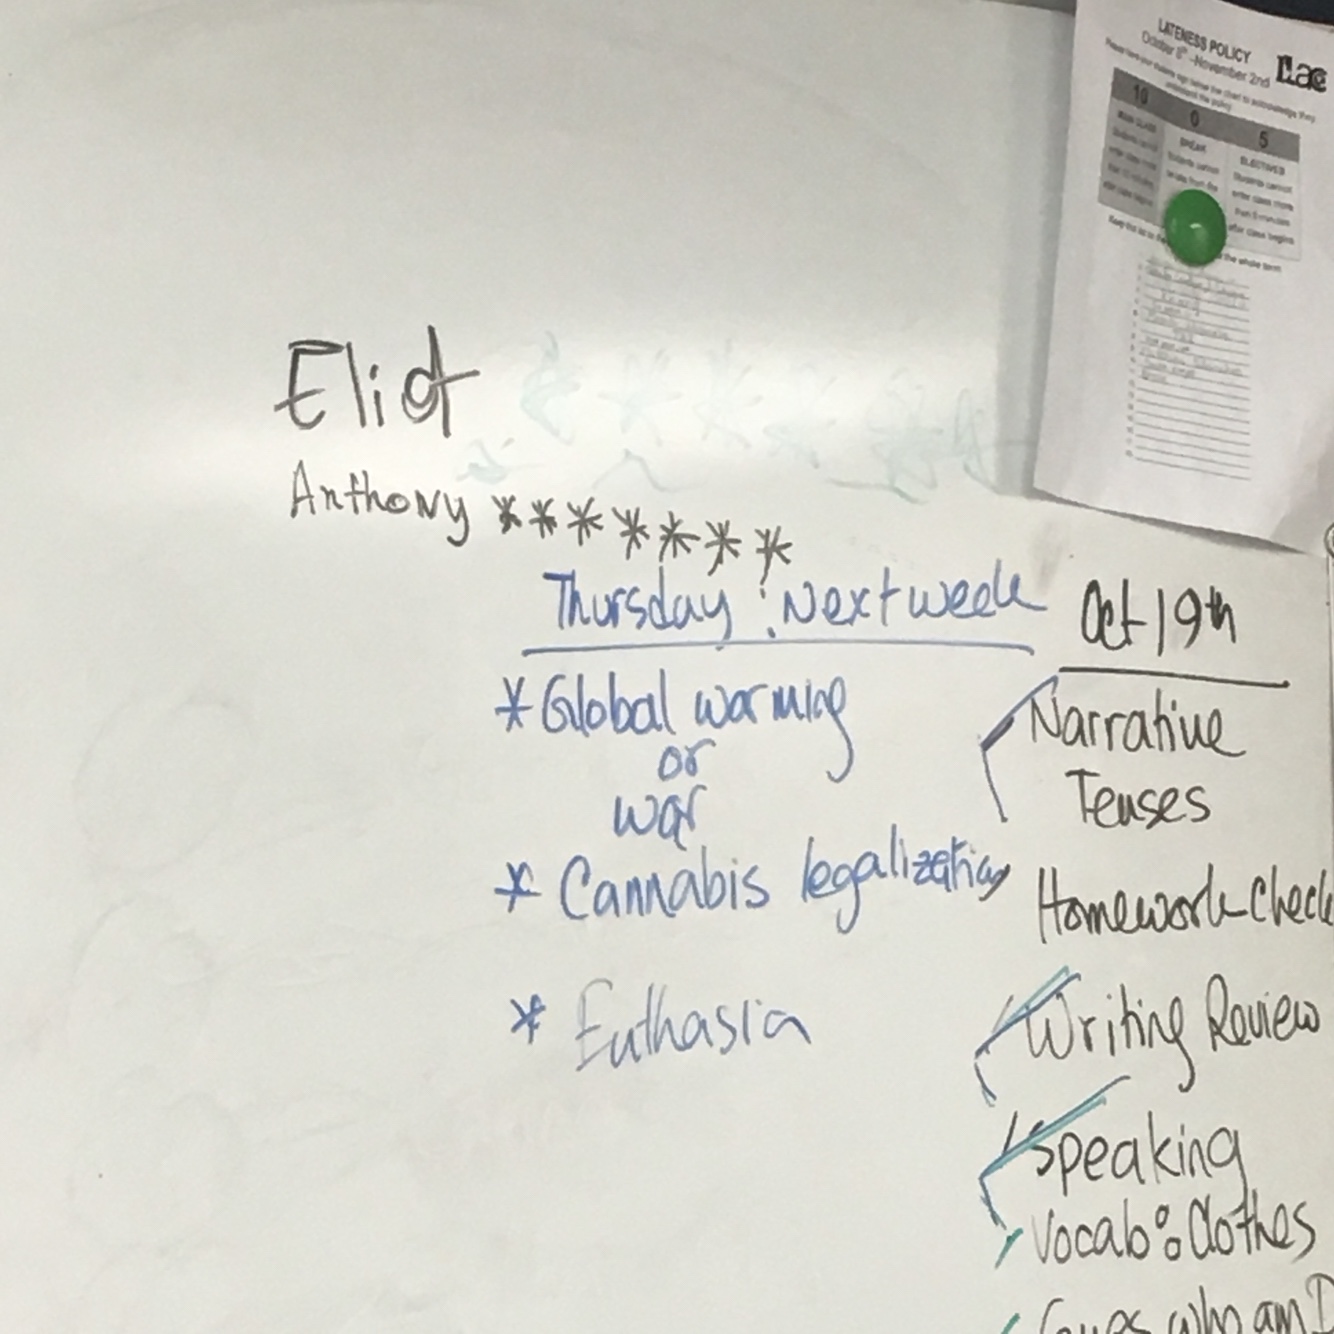 LATENESS POLICY
October 8th - November 2nd
ILAC
10
0
5
SPEAK
ELECTIVES
Students cannot
enter class more
than 5 minutes
after class begins
the whole term
Eliot
Anthony *******
Thursday : Next week
* Global warming
or
war
* Cannabis legalization
* Euthasia
Oct 19th
Narrative
Tenses
Homework Check
Writing Review
Speaking
Vocab: Clothes
Guess who am I